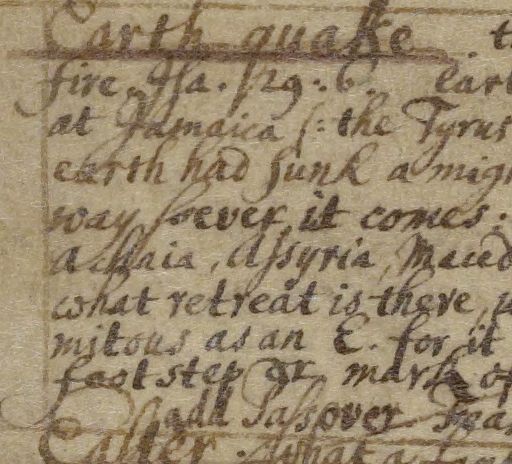 Earth quake t
fire. Isa. 29: 6. eart
at Jamaica the Tyrus
earth had sunk a migh
way soever it comes.
Achaia, Assyria, Maced
what retreat is there,
mitous as an E. for it
footstep or mark of
add Passover
Easter. What a